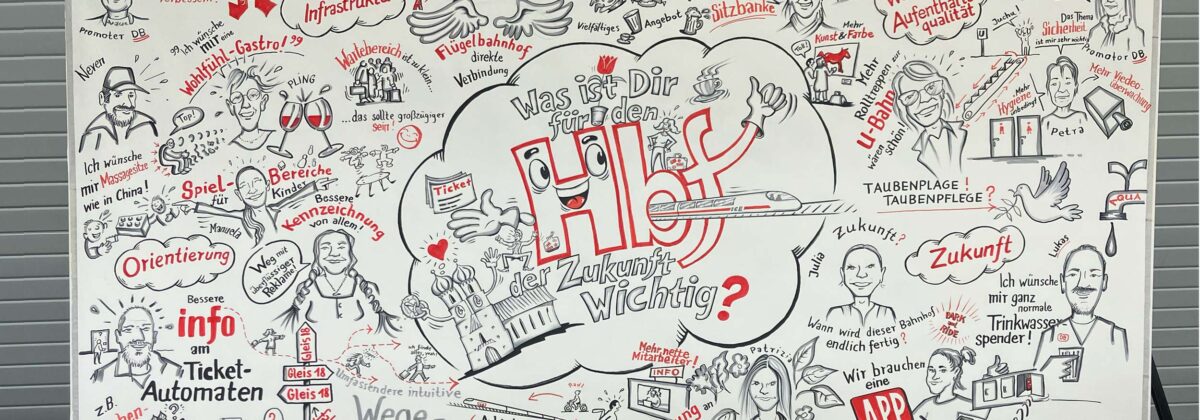 Promoter DB
Infrastruktur
Flügelbahnhof
direkte
Verbindung
Vielfältiges
Angebot
Sitzbänke
Mehr
Kunst & Farbe
Aufenthalts
qualität
Juchu!
Das Thema
Sicherheit
ist mir sehr wichtig
Promotor DB
Neven
Ich wünsche
mir eine
Wohlfühl-Gastro!
PLING
Top!
Ich wünsche
mir Massagesitze
wie in China!
Wartebereich ist zu klein...
...das sollte großzügiger
sein!
Spiel-
Bereiche
für
Kinder
Manuela
Was ist Dir
für den
Hbf
der Zukunft
Wichtig?
Ticket
ICE
Mehr
Rolltreppen zur
U-Bahn
wären
schön!
Mehr
Hygiene
Petra
Mehr Viedeo
überwachung
TAUBENPLAGE!
TAUBENPFLEGE?
AQUA
Orientierung
Bessere
Kennzeichnung
von allem!
Weg mit
überflüssiger
Reklame!
Bessere
info
am
Ticket-
Automaten
Gleis 18
Gleis 18
Gleis 18
Umfassendere intuitive
Wege
z.B.
Zukunft?
Julia
Wann wird dieser Bahnhof
endlich fertig?
PARK
and
RIDE
Zukunft
Lukas
Ich wünsche
mir ganz
normale
Trinkwasser
spender!
DB
Mehr nette
Mitarbeiter!
INFO
Patrizia
Wir brauchen
eine
APP